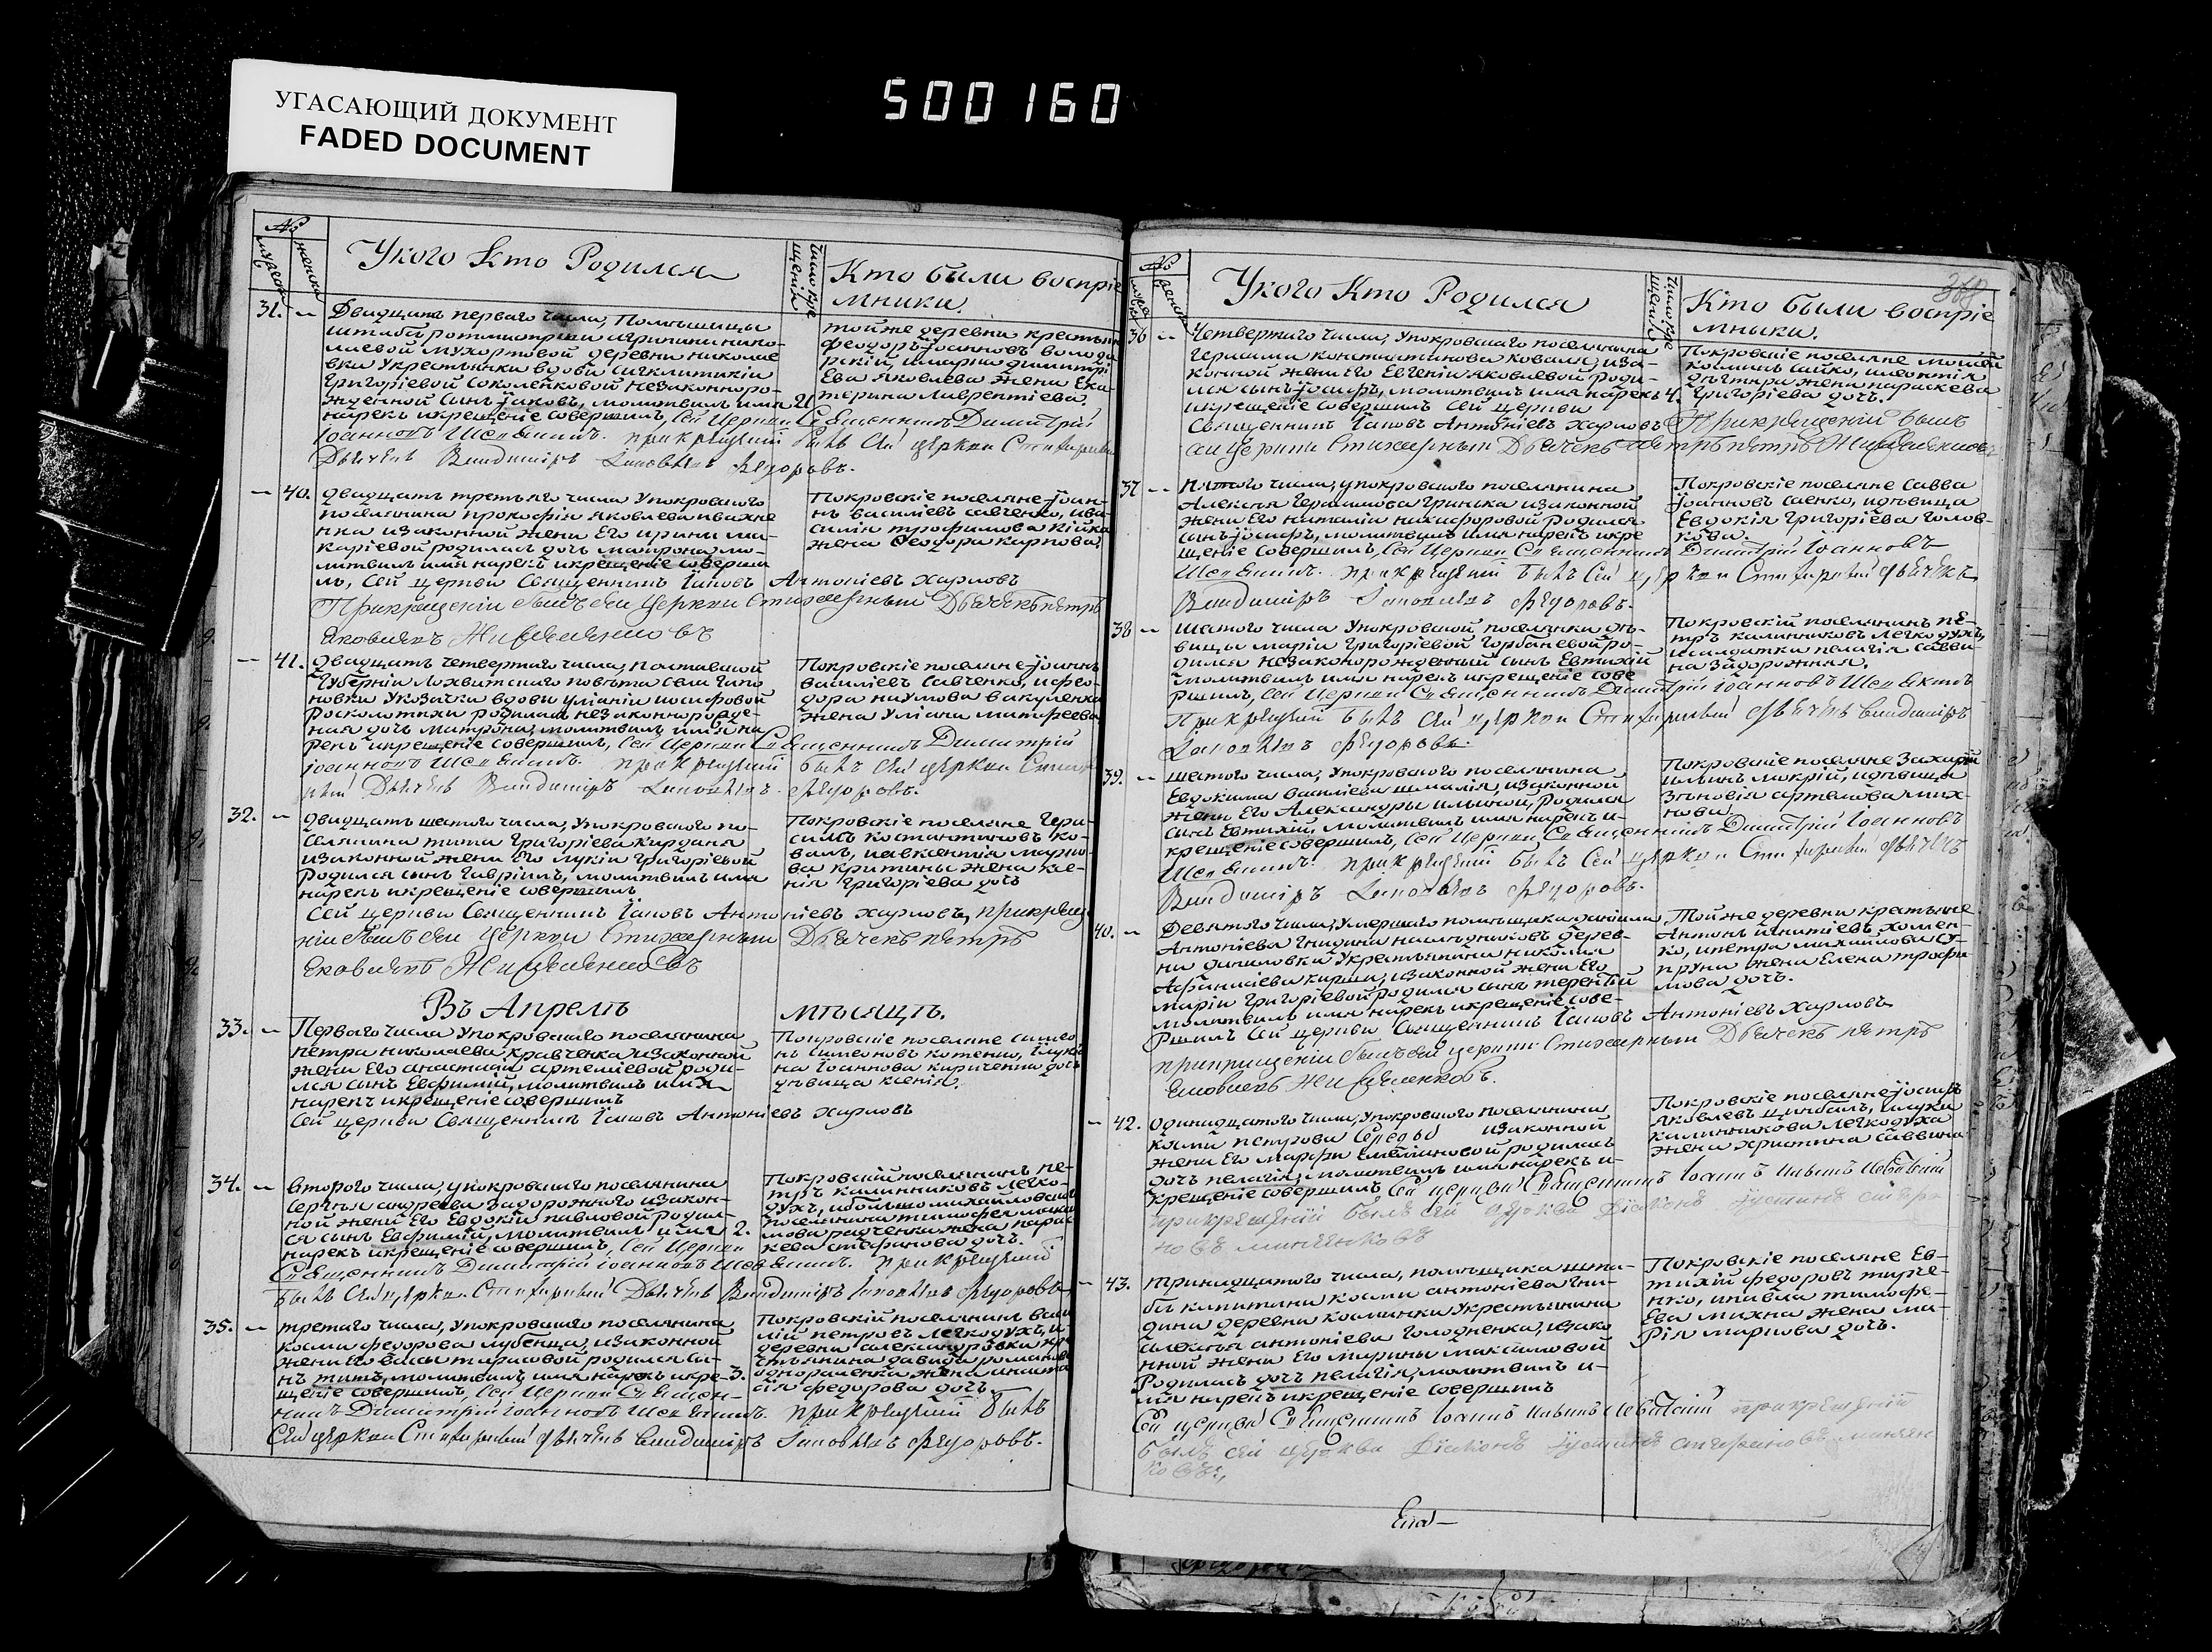 УГАСАЮЩИЙ ДОКУМЕНТ
FADED DOCUMENT
500160
№
Укого Кто Родился
Кто были воспріе
мники.
31. —
Двадцать перваго числа, Помѣщицы
штабъ ротмистрши
лаевой Мухортовой деревни николае
вки Укрестьянки вдовы
Григоріевой Соколенковой незаконноро-
жденной сынъ Іаковъ, молитвилъ имя
нарекъ икрещеніе совершилъ, Сей Церкви Священникъ Димитрій
Іоанновъ прикрещеніи былъ сей церкви Стихарный
Дьячекъ Владиміръ Іаковлевъ Федоровъ.
21
тойже деревни крестьян
феодоръ Іоанновъ
имаріа димитрі
Ева Яковлева жена Ека-
терина Лаврентіева.
— 40.
двадцать третьяго числа Упокровского
поселянина прокофія Яковлева
нка изаконной жени Его ирини ма-
каріевой родилась дочь матрона, мо-
литвилъ имя нарекъ икрещеніе соверши
лъ, Сей церкви Священникъ Іаковъ Антоніевъ Харловъ
Прикрещеніи былъ сей церкви Стихарный Дьячекъ петръ
Яковлевъ
Покровскіе поселяне Іоан-
нъ василіевъ савченко, ива
силія трофимова Кійка
жена Феодора карпова.
— 41.
двадцать четвертаго числа, Полтавской
Губерніи Лохвитского повѣта
новки Указачки вдови уліаніи иосифовой
родилась незаконнорожде-
ная дочь матрона, молитвилъ имя на
рекъ икрещеніе совершилъ, Сей Церкви Священникъ Димитрій
Іоанновъ прикрещеніи былъ сей церкви Стиха
рный Дьячекъ Владиміръ Іаковлевъ Федоровъ.
Покровскіе поселяне Іоаннъ
василіевъ Савченко, ифео
дора наумова вакуленка
жена Уліана матфеева
32. —
двадцать шестого числа, Упокровского по-
селянина тита Григоріева Кирданя
изаконной жени Его лукіи Григоріевой
Родился сынъ Гавріилъ, молитвилъ имя
нарекъ икрещеніе совершилъ
Сей церкви Священникъ Іаковъ Антоніевъ Харловъ, прикреще
ніи былъ сей Церкви Стихарный Дьячекъ петръ
Яковлевъ
Покровскіе поселяне Гера-
симъ костантиновъ ко-
валь, иавксентія марко-
ва критины жена ксе-
нія Григоріева дочь
Въ Апрелѣ мѣсяцѣ.
33. —
Перваго числа Упокровского поселянина
петра николаева кравченка изаконной
жени Его анастасіи артеміевой роди-
лся сынъ Евфимій, молитвилъ имя
нарекъ икрещеніе совершилъ
Сей церкви Священникъ Іаковъ Антоніевъ Харловъ
Покровскіе поселяне симео
нъ симеоновъ котенко,
на Іоаннова кириченка дочь
дѣвица ксенія.
34. —
второго числа, упокровского поселянина
Сергѣя андреева задорожного изакон-
ной жени Его Евдокіи павловой родил-
ся сынъ Евфимій, молитвилъ имя
нарекъ икрещеніе совершилъ, Сей Церкви
Священникъ Димитрій Іоанновъ прикрещеніи
былъ Сей церкви Стихарный Дьячекъ Владиміръ Іаковлевъ Федоровъ
2.
Покровскій поселянинъ пе-
тръ калинниковъ легко-
духъ, ибольшомихайловского
поселянина тимофея
мова радченка жена парас
кева стефанова дочь.
35. —
третаго числа, Упокровского поселянина
козми федорова лубенца, изаконной
жени Его родился сы-
нъ титъ, молитвилъ имя нарекъ икре-
щеніе совершилъ, Сей Церкви Священ-
никъ Димитрій Іоанновъ прикрещеніи былъ
Сей церкви Стихарный дьячекъ владиміръ Іаковлевъ Федоровъ.
3.
Покровскій поселянинъ васи
лій петровъ легкодухъ, и
деревни александровки кре
стьянина давида романова
жена анаста
сія федорова дочь
№
Укого Кто Родился
Кто были воспріе
мники.
36 —
Четвертаго числа, упокровского поселянина
Герасима константинова коваля, иза-
конной жени Его Евгеніи Яковлевой роди-
лся сынъ Іосифъ, молитвилъ имя нарекъ
икрещеніе совершилъ Сей церкви
Священникъ Іаковъ Антоніевъ Харловъ Прикрещеніи былъ
сей Церкви Стихарный Дьячекъ петръ
4.
Покровскіе поселяне мойсей
козминъ сайко, илеонтія
дехтяра жена параскева
Григоріева дочь.
37 —
Пятого числа, упокровского поселянина
Алексѣя Герасимова Гринька изаконной
жени Его наталіи никифоровой родился
сынъ Іосифъ, молитвилъ имя нарекъ икре
щеніе совершилъ, Сей Церкви Священникъ Димитрій Іоанновъ
прикрещеніи былъ Сей церкви Стихарный дьячекъ
Владиміръ Іаковлевъ Федоровъ.
Покровскіе поселяне Савва
Іоанновъ саенко, идѣвица
Евдокія Григоріева Голов-
кова.
38 —
Шестого числа Упокровской поселянки дѣ-
вицы маріи Григоріевой Горбаневой ро-
дился незаконорожденный сынъ Евтихій
молитвилъ имя нарекъ икрещеніе сове
ршилъ, Сей Церкви Священникъ Димитрій Іоанновъ
Прикрещеніи былъ Сей церкви Стихарный дьячекъ владиміръ
Іаковлевъ Федоровъ.
Покровскій поселянинъ пе-
тръ калинниковъ легкодухъ,
исолдатка пелагія савви-
на задорожняя.
39. —
шестого числа, Упокровского поселянина
Евдокима василіева шмалія, изаконной
жени Его Александры ильиной, родился
сынъ Евтихій, молитвилъ имя нарекъ и-
крещеніе совершилъ, Сей Церкви Священникъ Димитрій Іоанновъ
прикрещеніи былъ Сей церкви Стихарный дьячекъ
Владиміръ Іаковлевъ Федоровъ.
Покровскіе поселяне Захарій
ильинъ мокрій, идѣвица
Зѣновія артемова мих-
нова.
40. —
Девятого числа, Умершого помѣщика даніила
Антоніева Гнидина наслѣдниковъ дерев-
ни даниловки Укрестьянина николая
Афанасіева кирпи, изаконной жени Его
маріи Григоріевой родился сынъ терентій
молитвилъ имя нарекъ икрещеніе сове-
ршилъ Сей церкви Священникъ Іаковъ Антоніевъ Харловъ
прикрещеніи былъ сей церкви Стихарный Дьячекъ петръ
Яковлевъ
Тойже деревни крестьяне
Антонъ игнатіевъ хомен-
ко, ипетра михайлова су-
пруна жена Елена трофи
мова дочь.
— 42.
одинадцатого числа, упокровского поселянина
козми петрова Середы изаконной
жени Его марфи Емеліановой родилась
дочь пелагія, молитвилъ имя нарекъ и-
крещеніе совершилъ Сей церкви Священникъ Іоаннъ Ильинъ
прикрещеніи былъ сей церкви Діаконъ Іустинъ стефа
новъ
Покровскіе поселяне Іосифъ
Яковлевъ цимбалъ, илуки
калинникова легкодуха
жена христина саввина
— 43.
тринадцатого числа, помѣщика шта-
бъ капитана козми антоніева Гни-
дина деревни козминки Укрестьянина
алексѣя антоніева Голодненка, изако
нной жени Его марины максимовой
Родилась дочь пелагія, молитвилъ и-
мя нарекъ икрещеніе совершилъ
Сей церкви Священникъ Іоаннъ Ильинъ прикрещеніи
былъ сей церкви Діаконъ Іустинъ стефановъ
Покровскіе поселяне Ев-
тихій федоровъ тирче-
нко, ипавла тимофе-
ева михна жена ма-
рія маркова дочь.